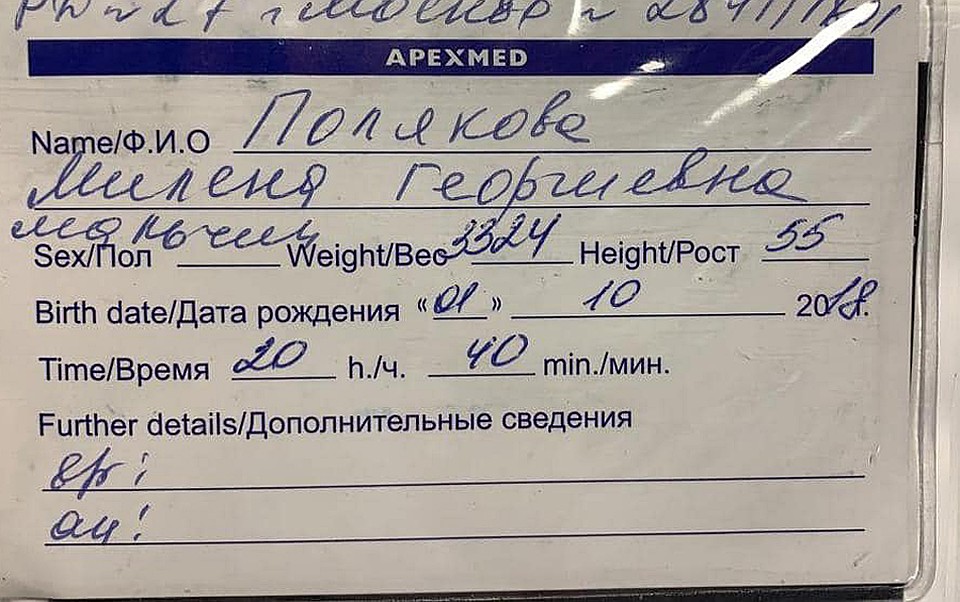 г Москва
APEXMED
Name/Ф.И.О Полякова
Милена Георгиевна
мальчик
Sex/Пол Weight/Вес 3324 Height/Рост 55
Birth date/Дата рождения «01» 10 2018.
Time/Время 20 h./ч. 40 min./мин.
Further details/Дополнительные сведения
вр:
ац: